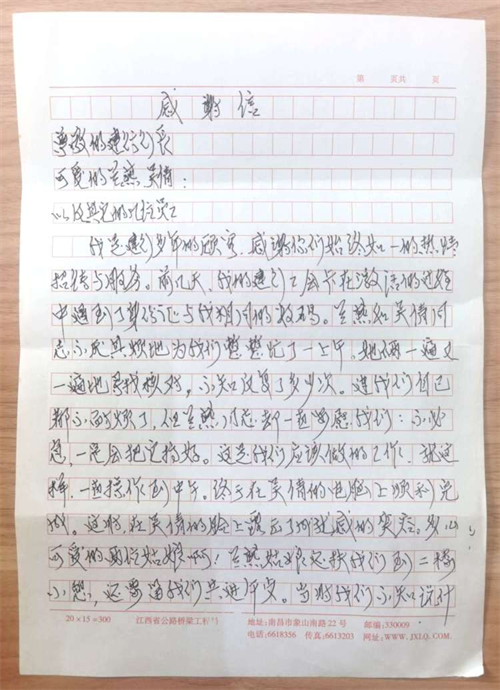 第 页共 页
感谢信
尊敬的建行行长
可爱的至熱 吴倩:
以及其它的行员工
我是建行多年的顾客,感谢你们始终如一的热情
招待与服务。前几天,我的建行工会卡在激活的过程
中遇到了身份证与我相同的号码。至熱和吴倩同
志不厌其烦地为我们整整忙了一上午。她俩一遍又
一遍地寻找核对,不知反复了多少次。连我们自己
都不耐烦了,但至熱同志却一直安慰我们:不必
急,一定会把它搞好。这是我们应该做的工作,就这
样,一直操作到中午。终于在吴倩的电脑上顺利完
成。这时,在吴倩的脸上露出了成就感的笑容。多么
可爱的两位姑娘啊!至熱姑娘还扶我们到二楼
小憩,还要留我们共进午点。当时我们不知该什
20×15=300
江西省公路桥梁工程
地址:南昌市象山南路22号
邮编:330009
电话:6618356 传真:6613203
网址:WWW.JXLQ.COM.